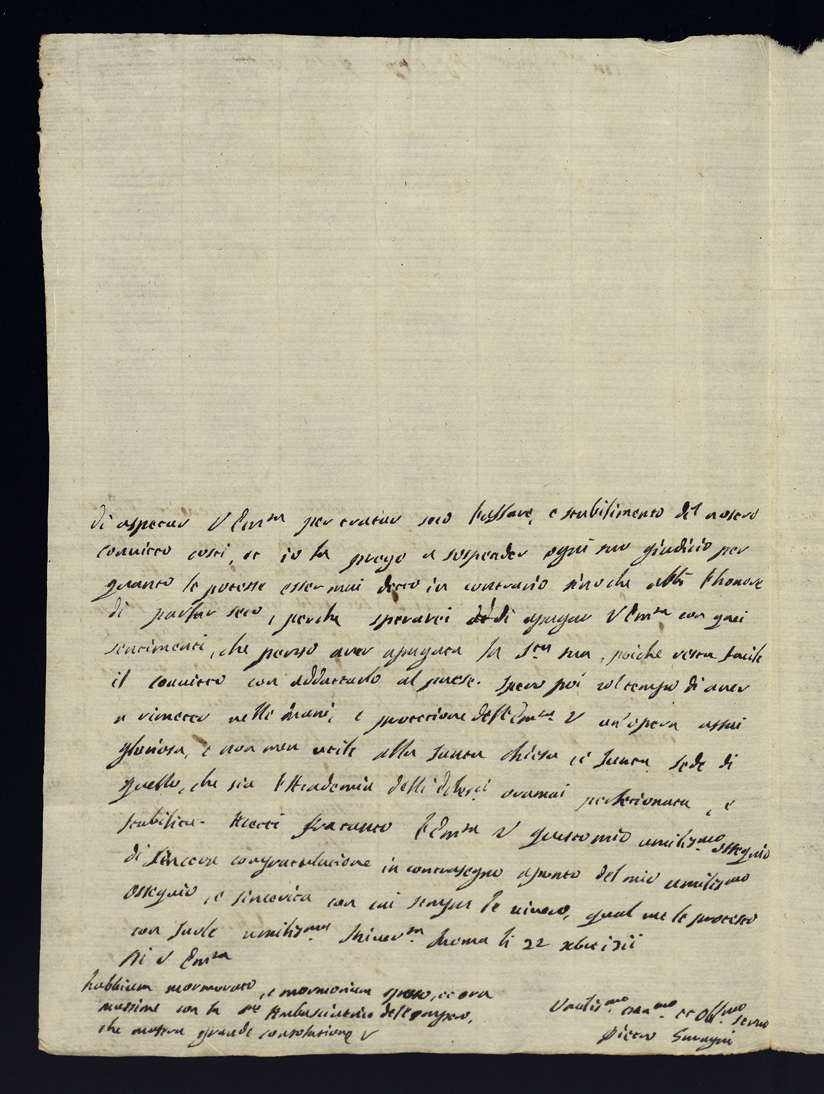 di aspetar V Em.za per tratar seco l'affare, e stabilimento del nostro
convitto costì, et io la prego a sospender ogni suo giudicio per
quanto le potesse esser mai detto in contrario sino che abbi l'honore
di parlar seco, perche sperarei di apagar V Em.za con quei
sentimenti, che penso aver apagata la S.tà sua, poiche resta facile
il convitto con addattarlo al paese. Spero poi col tempo di aver
a rimetter nelle mani, e protezione dell'Em.za V un'opera assai
gloriosa, e non men utile alla Santa Chiesa et Santa Sede di
quello, che sia l'Accademia delli ormai perfezionata, e
stabilita. Accetti fratanto l'Em.za V questo mio umiliss.mo ossequio
di sincera congratulazione in contrasegno apunto del mio umiliss.mo
ossequio, e sincerità con cui sempre le vivero, qual me le protesto
con farle umiliss.ma river.za Roma li 22
Di V Em.za
habbiam mormorato, e mormoriam spesso, et ora
massime con la Ambasciatrice dell'
che mostra grande consolatione V
Umilis.mo et Obb.mo servo
Pietro